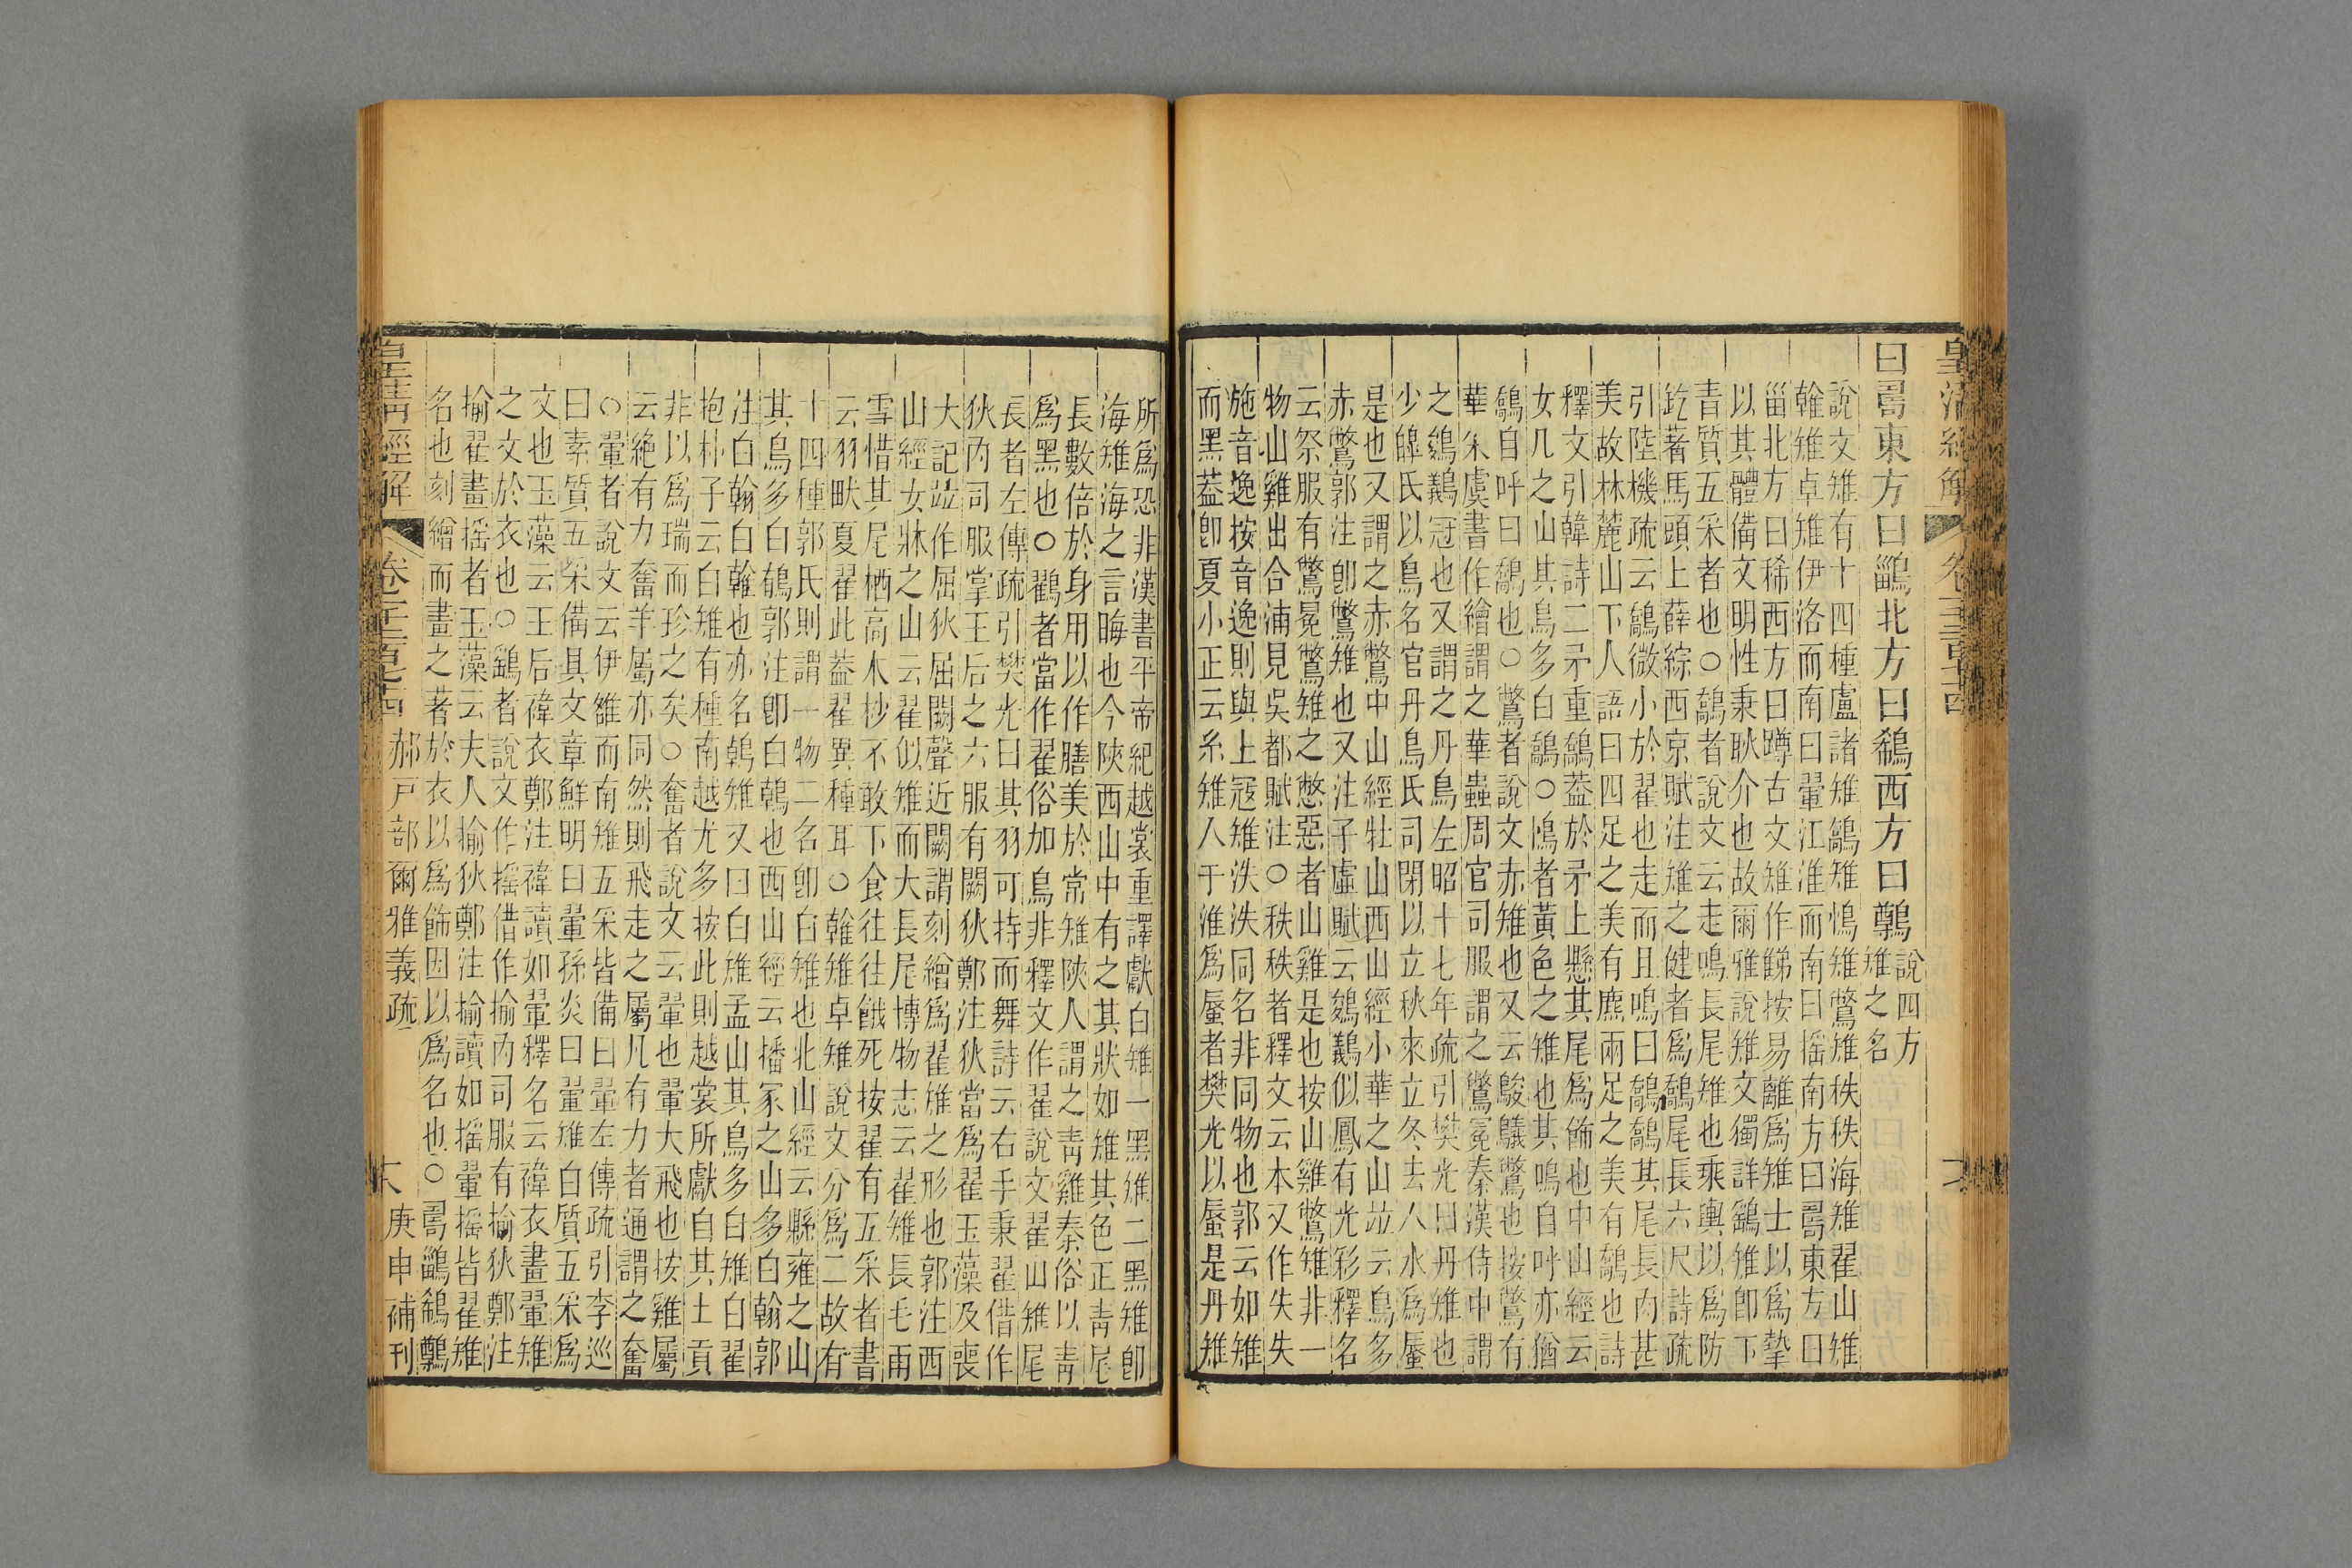 皇清經解
卷千二百七十四
曰鶅東方曰鶅北方曰鵗西方曰鷷
說四方
雉之名
說文雉有十四種盧諸雉鷮雉鳪雉鷩雉秩秩海雉翟山雉
雗雉卓雉伊洛而南曰翬江淮而南曰搖南方曰𠷎東方曰
甾北方曰稀西方曰蹲古文雉作䬾按易離爲雉士以爲摯
以其體備文明性秉耿介也故爾雅說雉文獨詳鷂雉卽下
青質五采者也○鷮者說文云走鳴長尾雉也乘輿以爲防
釳著馬頭上薛綜西京賦注雉之健者爲鷮尾長六尺詩疏
引陸機疏云鷮微小於翟也走而且鳴曰鷮鷮其尾長肉甚
美故林麓山下人語曰四足之美有麃兩足之美有鷮也詩
釋文引韓詩二矛重鷮葢於矛上懸其尾爲飾也中山經云
女几之山其鳥多白鷮○鳪者黃色之雉也其鳴自呼亦猶
鷮自呼曰鷮也○鷩者說文赤雉也又云鵔鸃鷩也按鷩有
華采虞書作繪謂之華蟲周官司服謂之鷩冕秦漢侍中謂
之鵕鸃冠也又謂之丹鳥左昭十七年疏引樊光曰丹雉也
少皥氏以鳥名官丹鳥氏司閉以立秋來立冬去入水爲蜃
是也又謂之赤鷩中山經牡山西山經小華之山竝云鳥多
赤鷩郭注卽鷩雉也又注子虛賦云鵕鸃似鳳有光彩釋名
云祭服有鷩冕鷩雉之憋惡者山雞是也按山雞鷩雉非一
物山雞出合浦見吳都賦注○秩秩者釋文云本又作失失
施音逸按音逸則與上寇雉泆泆同名非同物也郭云如雉
而黑葢卽夏小正云糸雉人于淮爲蜃者樊光以蜃是丹雉
所爲恐非漢書平帝紀越裳重譯獻白雉一黑雉二黑雉卽
海雉海之言晦也今陝西山中有之其狀如雉其色正靑尾
長數倍於身用以作膳美於常雉陝人謂之靑雞秦俗以靑
爲黑也○鸐者當作翟俗加鳥非釋文作翟說文翟山雉尾
長者左傳疏引樊光曰其羽可持而舞詩云右手秉翟借作
狄內司服掌王后之六服有闕狄鄭注狄當爲翟玉藻及喪
大記竝作屈狄屈闕聲近闕謂刻繒爲翟雉之形也郭注西
山經女牀之山云翟似雉而大長尾博物志云翟雉長毛雨
雪惜其尾栖高木杪不敢下食往往餓死按翟有五采者書
云羽畎夏翟此葢翟異種耳○雗雉卓雉說文分爲二故有
十四種郭氏則謂一物二名卽白雉也北山經云縣雍之山
其鳥多白鵫郭注卽白鵫也西山經云播冢之山多白翰郭
注白翰白雗也亦名鵫雉又曰白雉孟山其鳥多白雉白翟
抱朴子云白雉有種南越尤多按此則越裳所獻自其土貢
非以爲瑞而珍之矣○奮者說文云翬也翬大飛也按雞屬
云絶有力奮羊屬亦同然則飛走之屬凡有力者通謂之奮
○翬者說文云伊雒而南雉五采皆備曰翬左傳疏引李巡
曰素質五采備具文章鮮明曰翬孫炎曰翬雉白質五采爲
文也玉藻云王后褘衣鄭注褘讀如翬釋名云褘衣畫翬雉
之文於衣也○鷂者說文作搖借作揄內司服有揄狄鄭注
揄翟畫搖者玉藻云夫人揄狄鄭注揄讀如搖翬搖皆翟雉
名也刻繒而畫之著於衣以爲飾因以爲名也○𠷎鶅鵗鷷
皇淸經解
卷千二百七十四
郝戸部爾雅義疏
庚申補刊